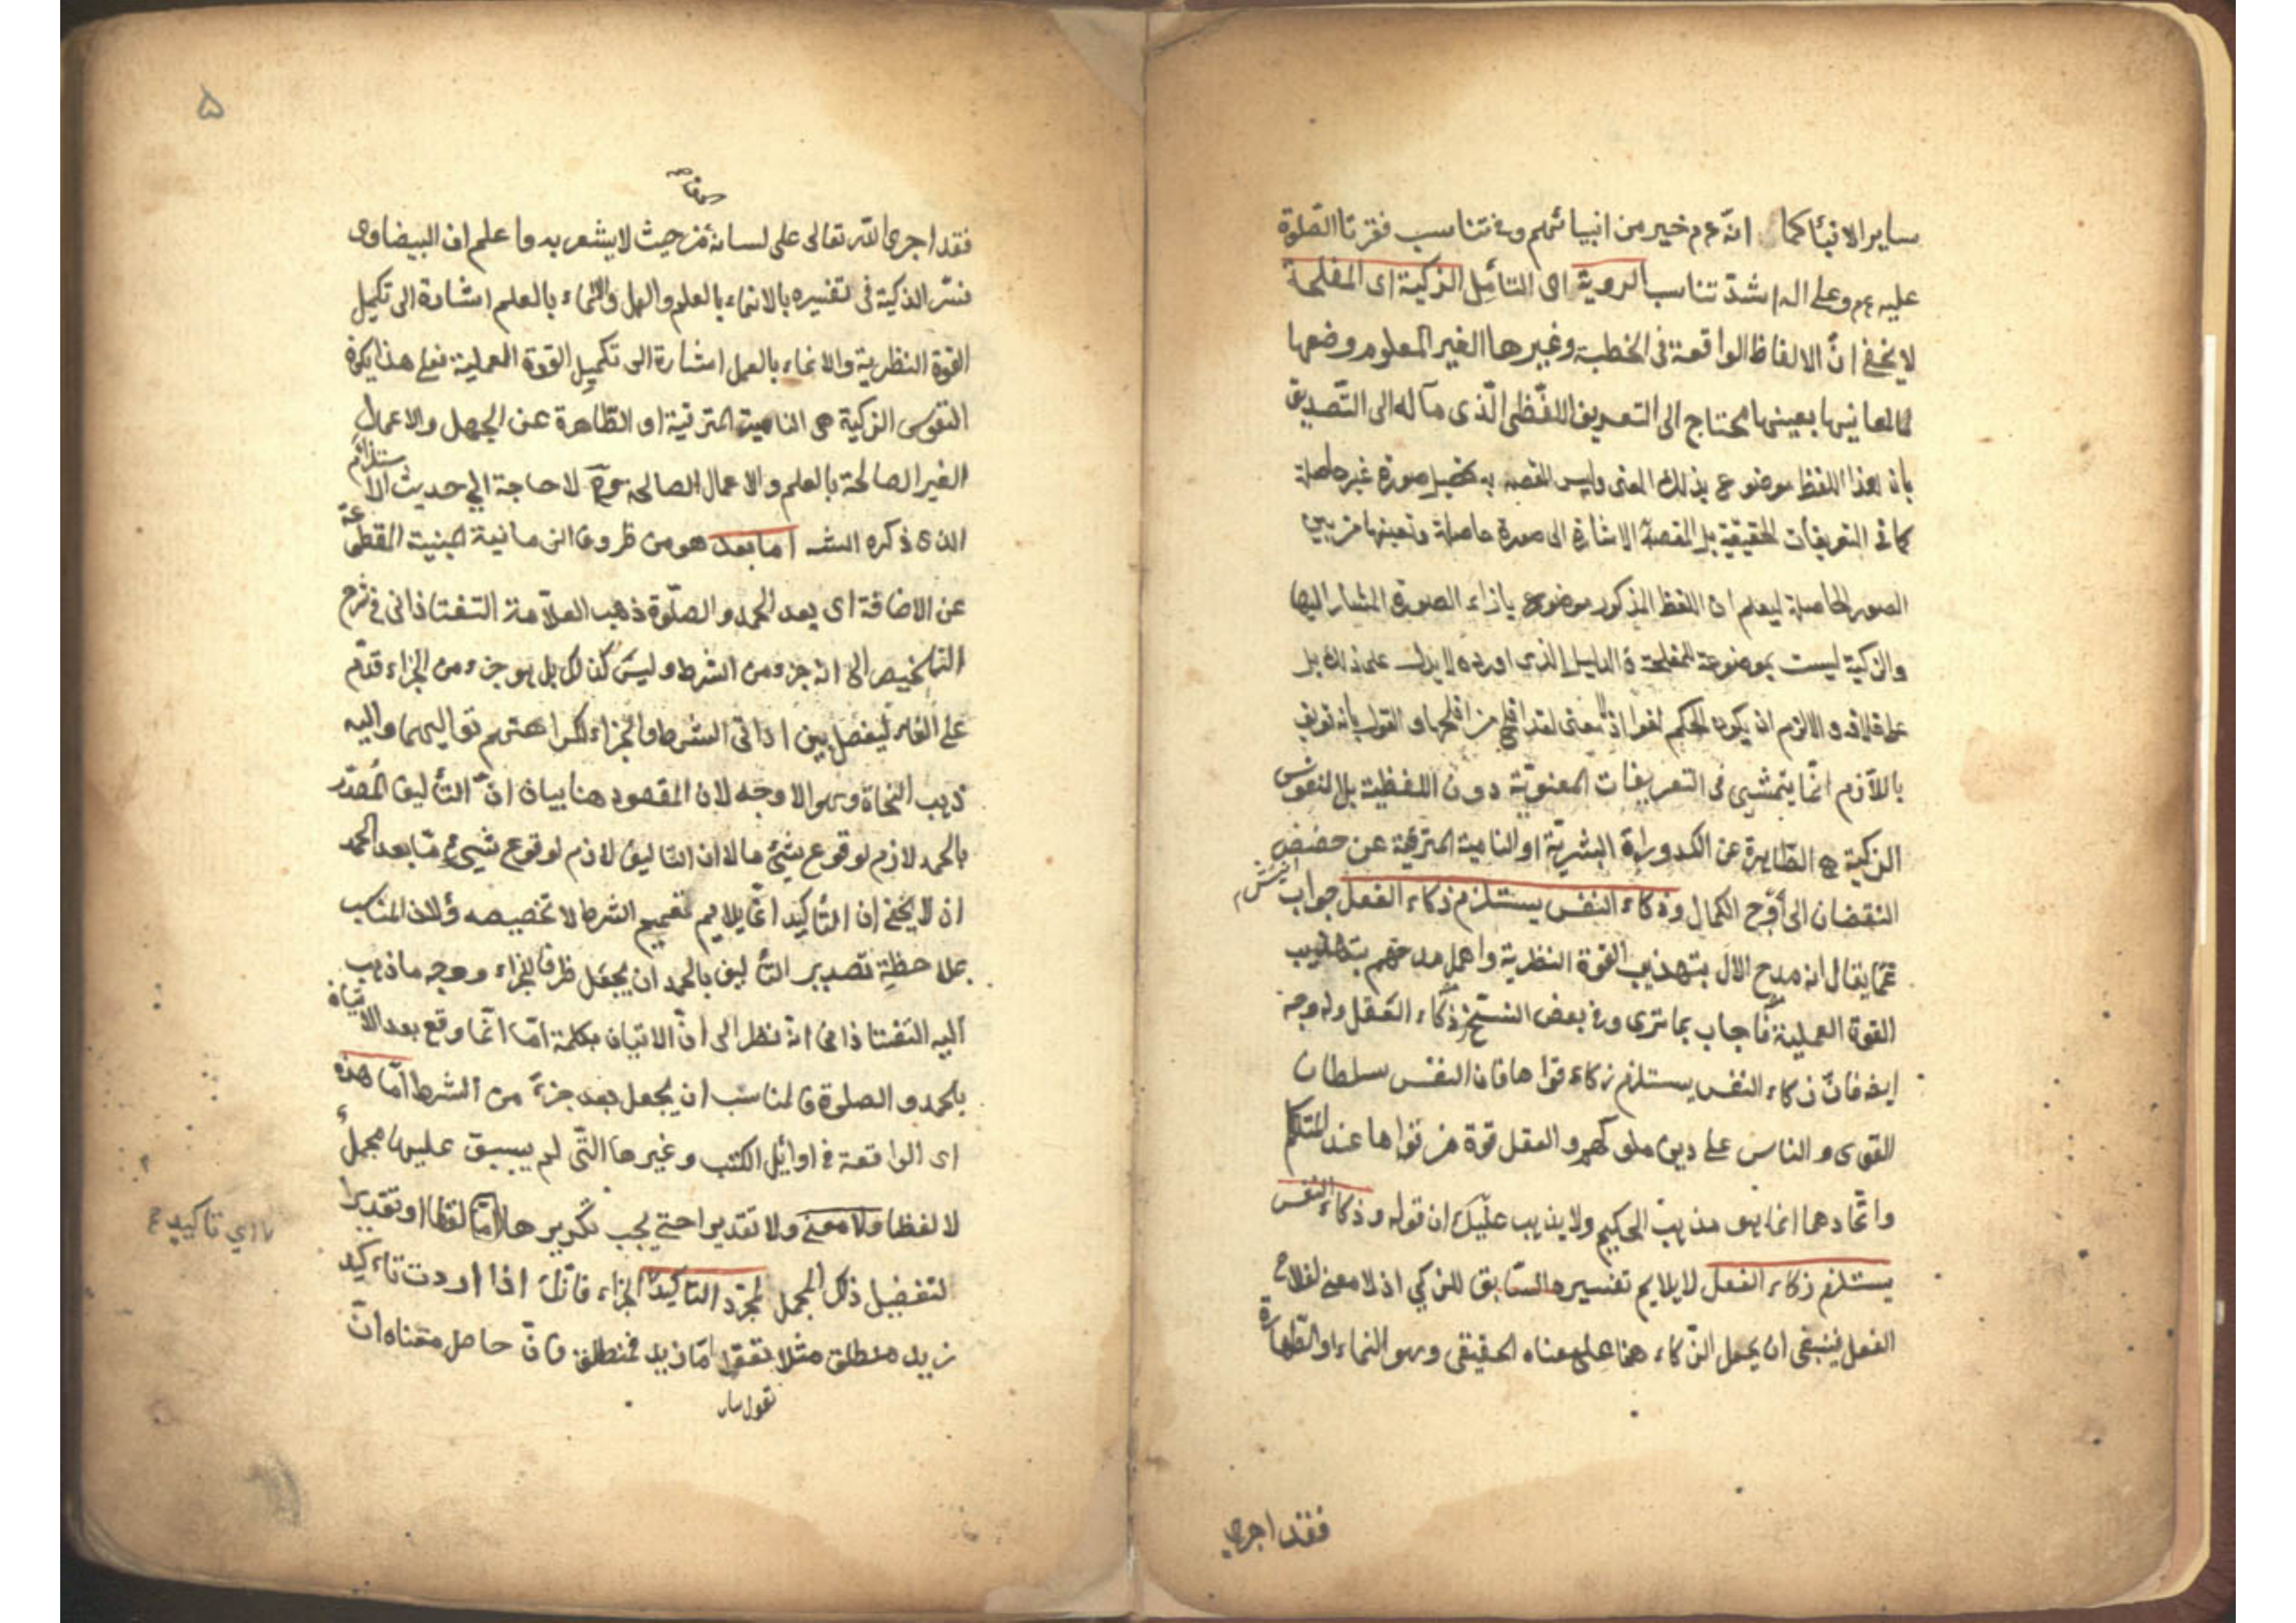 ساير الانبيا كما انه عم خير من انبيائهم وفى تناسب فقرتا الصلوة
عليه عم وعلى اله اشد تناسب الروية اى التأمل الزكية اى المفلحة
لا يخفى ان الالفاظ الواقعة فى الخطبة وغيرها الغير المعلوم وضعها
لمعانيها بعينها محتاج الى التعريف اللفظى الذى مآله الى التصديق
بان هذا اللفظ موضوع بذلك المعنى وليس المقصد به تحصيل صورة غير حاصلة
كما فى التعريفات الحقيقية بل المقصد الاشارة الى صورة حاصلة وتعينها من بين
الصور الحاصلة ليعلم ان اللفظ المذكور موضوع بازاء الصورة المشار اليها
والزكية ليست بموضوعة للمفلحة والدليل الذى اورده لا يدل على ذلك بل
على خلافه والا لزم ان يكون الحكم لغوا اذ المعنى لقد افلح من افلحها والقول بانه تعريف
باللازم انما يتمشى فى التعريفات المعنوية دون اللفظية بل النفوس
الزكية هى الطاهرة عن الكدوراة البشرية او النامية المترقية عن حضيض
النقصان الى أوج الكمال وذكاء النفس يستلزم ذكاء الفعل جواب
عما يقال انه مدح الال بتهذيب القوة النظرية واهمل مدحهم بتهذيب
القوة العملية فأجاب بما ترى وفى بعض النسخ ذكاء العقل وله وجه
ايضا فان زكاء النفس يستلزم زكاء قواها فان النفس سلطان
القوى والناس على دين ملوكهم والعقل قوة من قواها عند المتكلم
واتحادهما انما هو مذهب الحكيم ولا يذهب عليك ان قوله وذكاء النفس
يستلزم زكاء الفعل لا يلايم تفسيره السابق للزكى اذ لا معنى لفلاح
الفعل فينبغى ان يحمل الزكاء هنا على معناه الحقيقى وهو النماء او الطهارة
فقد اجرى
۵
فقد اجرى الله تعالى على لسانه من حيث لا يشعر به واعلم ان البيضاوى
فسر الزكية فى تفسيره بالانماء بالعلم والعمل والانماء بالعلم اشارة الى تكميل
القوة النظرية والانماء بالعمل اشارة الى تكميل القوة العملية فعلى هذا يكون
النفوس الزكية هى النامية المترقية او الطاهرة عن الجهل والاعمال
الغير الصالحة بالعلم والاعمال الصالحة لا حاجة الى حديث الاستلزام
الذى ذكره الشه اما بعد هو من ظروف الزمانية المبنية المقطوعة
عن الاضافة اى بعد الحمد والصلوة ذهب العلامة التفتازانى فى شرح
التلخيص الى انه جزء من الشرط وليس كذلك بل هو جزء من الجزاء قدم
على الفاء ليفصل بين اداتى الشرط والجزاء لكراهتهم تواليهما واليه
ذهب النحاة وهو الاوجه لان المقصود هنا بيان ان التأليف المصدر
بالحمد لازم لوقوع شئ ما لا ان التاليف لازم لوقوع شئ مما بعد الحمد
اذ لا يخفى ان التأكيد انما يلايم تعميم الشرط لا تخصيصه ولان المناسب
بملاحظة تصدير التأليف بالحمد ان يجعل ظرف الجزاء ووجه ما ذهب
اليه التفتازانى انه نظر الى أن الاتيان بكلمة اما انما وقع بعد الاتيان
بالحمد والصلوة فالمناسب ان يجعل بعد جزءً من الشرط اما هذه
اى الواقعة فى اوائل الكتب وغيرها التى لم يسبق عليها مجمل
لا لفظا ولا معنى ولا تقديرا حتى يجب تكريرها اما لفظا او تقديرا
لتفصيل ذلك المجمل لمجرد التاكيد الجزاء فانك اذا اردت تاءكيد
زيد منطلق مثلا تقول اما زيد فمنطلق فان حاصل معناه ان
اى تاكيد